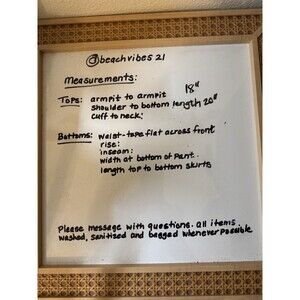 @beachvibes21
Measurements:
Tops: armpit to armpit 18"
Shoulder to bottom length 20"
Cuff to neck:
Bottoms: waist-tape flat across front
rise:
inseam:
width at bottom of pant.
length top to bottom skirts
Please message with questions. all items
washed, sanitized and bagged whenever possible